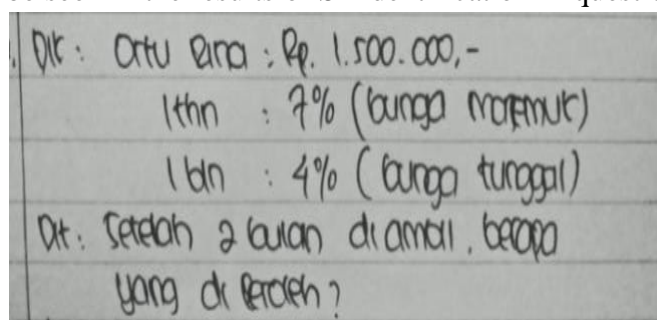 Dik : Ortu Rina : Rp. 1.500.000,-
1 thn : 7% (bunga majemuk)
1 bln : 4% (bunga tunggal)
Dit : Setelah 2 bulan diambil, berapa
yang di peroleh?